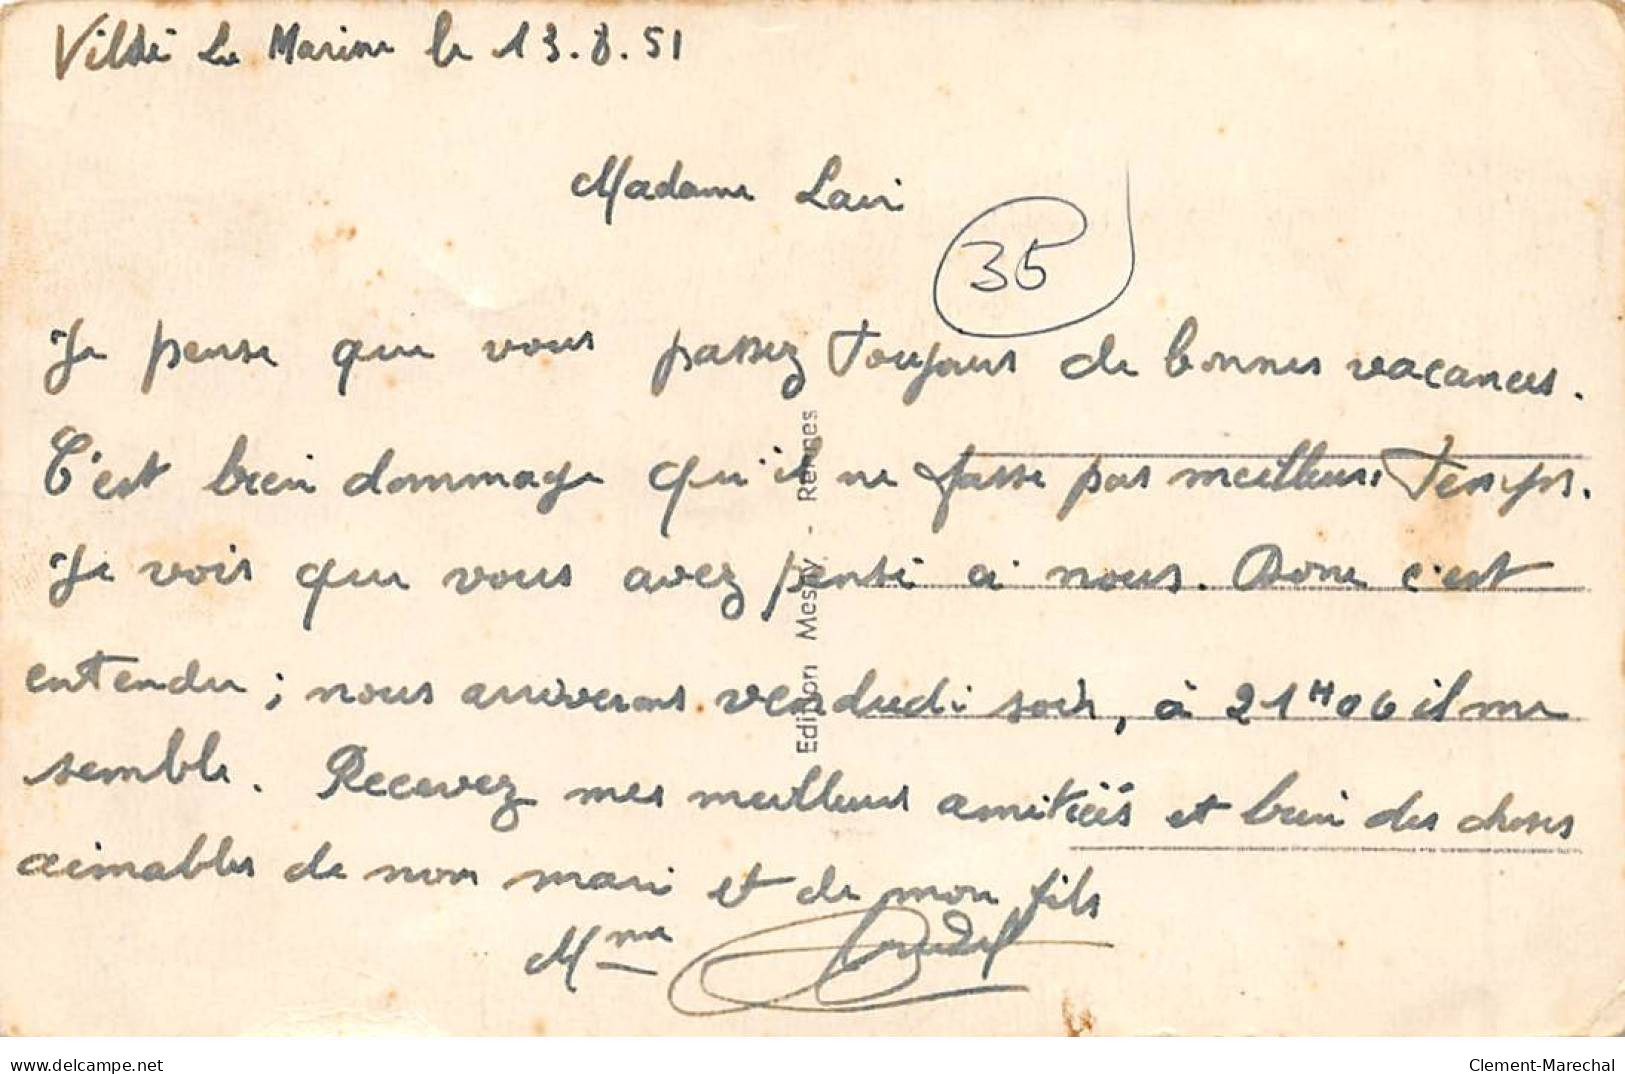 Vildé La Marine le 13.8.51
Madame Lair
35
Je pense que vous passez toujours de bonnes vacances.
C'est bien dommage qu'il ne fasse pas meilleurs temps.
Je vois que vous avez pensé à nous. Donc c'est
entendu ; nous arriverons vendredi soir, à 21H06 il me
semble. Recevez mes meilleurs amitiés et bien des choses
aimables de mon mari et de mon fils
Mme
Edition Mesny - Rennes
delcampe.net
Clement-Marechal